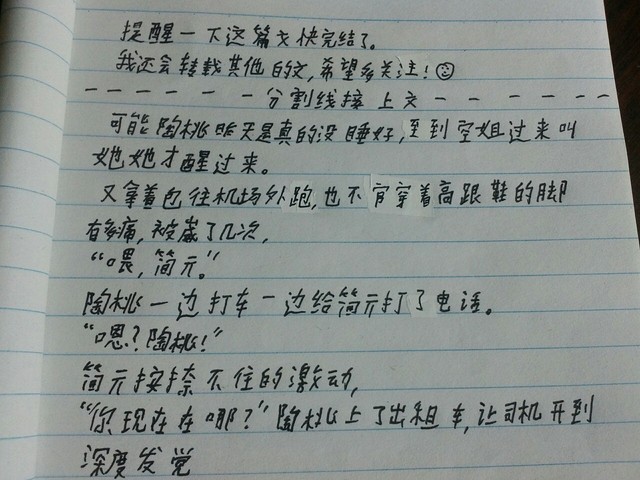 提醒一下这篇文快完结了。
我还会转载其他的文,希望多关注!☺
------分割线接上文------
可能陶桃昨天是真的没睡好,至到空姐过来叫
她她才醒过来。
又拿着包往机场外跑,也不官穿着高跟鞋的脚
有多痛,被崴了几次,
“喂,简亓。”
陶桃一边打车一边给简亓打了电话。
“嗯?陶桃!”
简亓按捺不住的激动,
“你现在在哪?”陶桃上了出租车,让司机开到
深度发觉